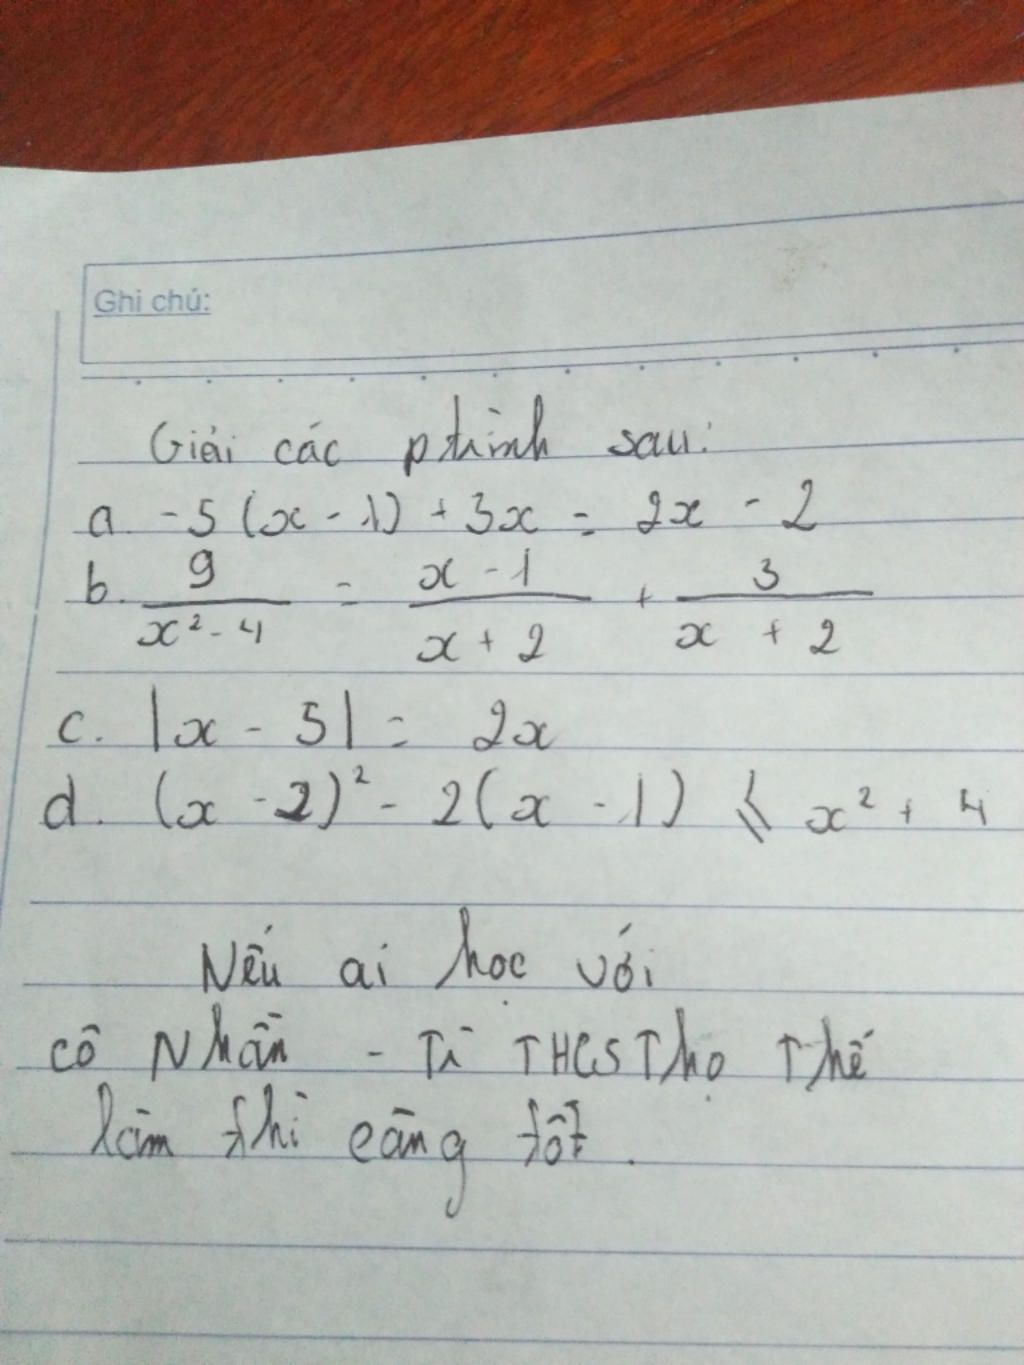 Ghi chú:
Giải các ptrình sau:
a. -5(x - 1) + 3x = 2x - 2
b. 9/(x² - 4) = (x - 1)/(x + 2) + 3/(x + 2)
c. |x - 5| = 2x
d. (x - 2)² - 2(x - 1) ≤ x² + 4
Nếu ai học với
cô Nhần - Tì THCS Thọ Thế
làm thì càng tốt.